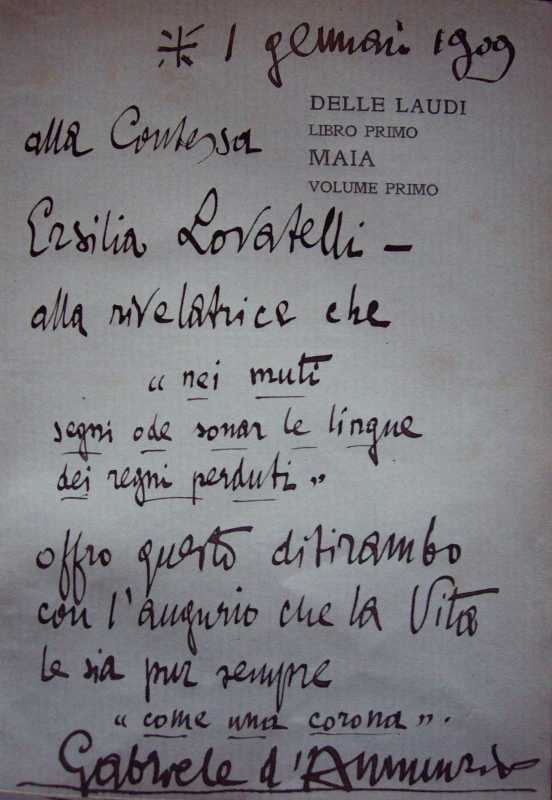 1 gennaio 1909
DELLE LAUDI
LIBRO PRIMO
MAIA
VOLUME PRIMO
alla Contessa
Ersilia Lovatelli —
alla rivelatrice che
“ nei muti
segni ode sonar le lingue
dei regni perduti „
offro questo ditirambo
con l'augurio che la Vita
le sia pur sempre
“ come una corona „.
Gabriele d'Annunzio